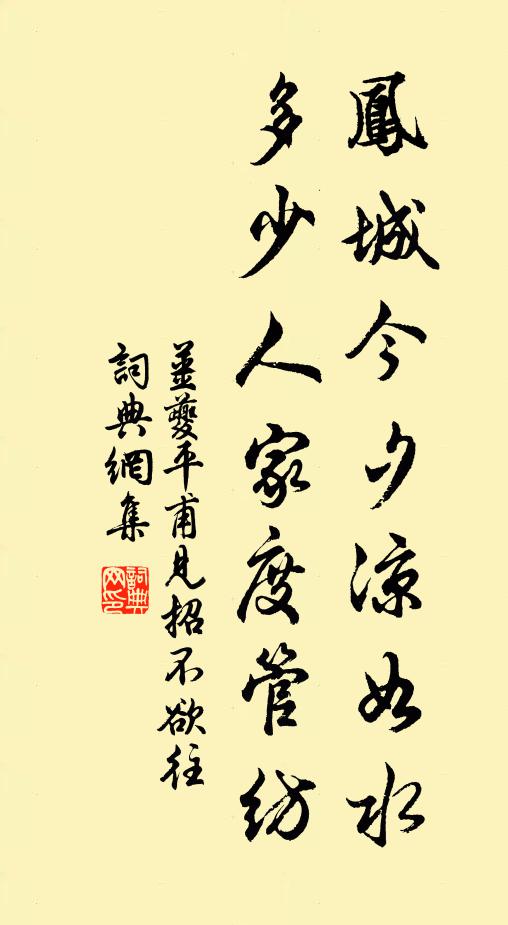 鳳城今夕涼如水
多少人家度管紡
姜夔平甫見招不欲往
詞典網集
詞典網印